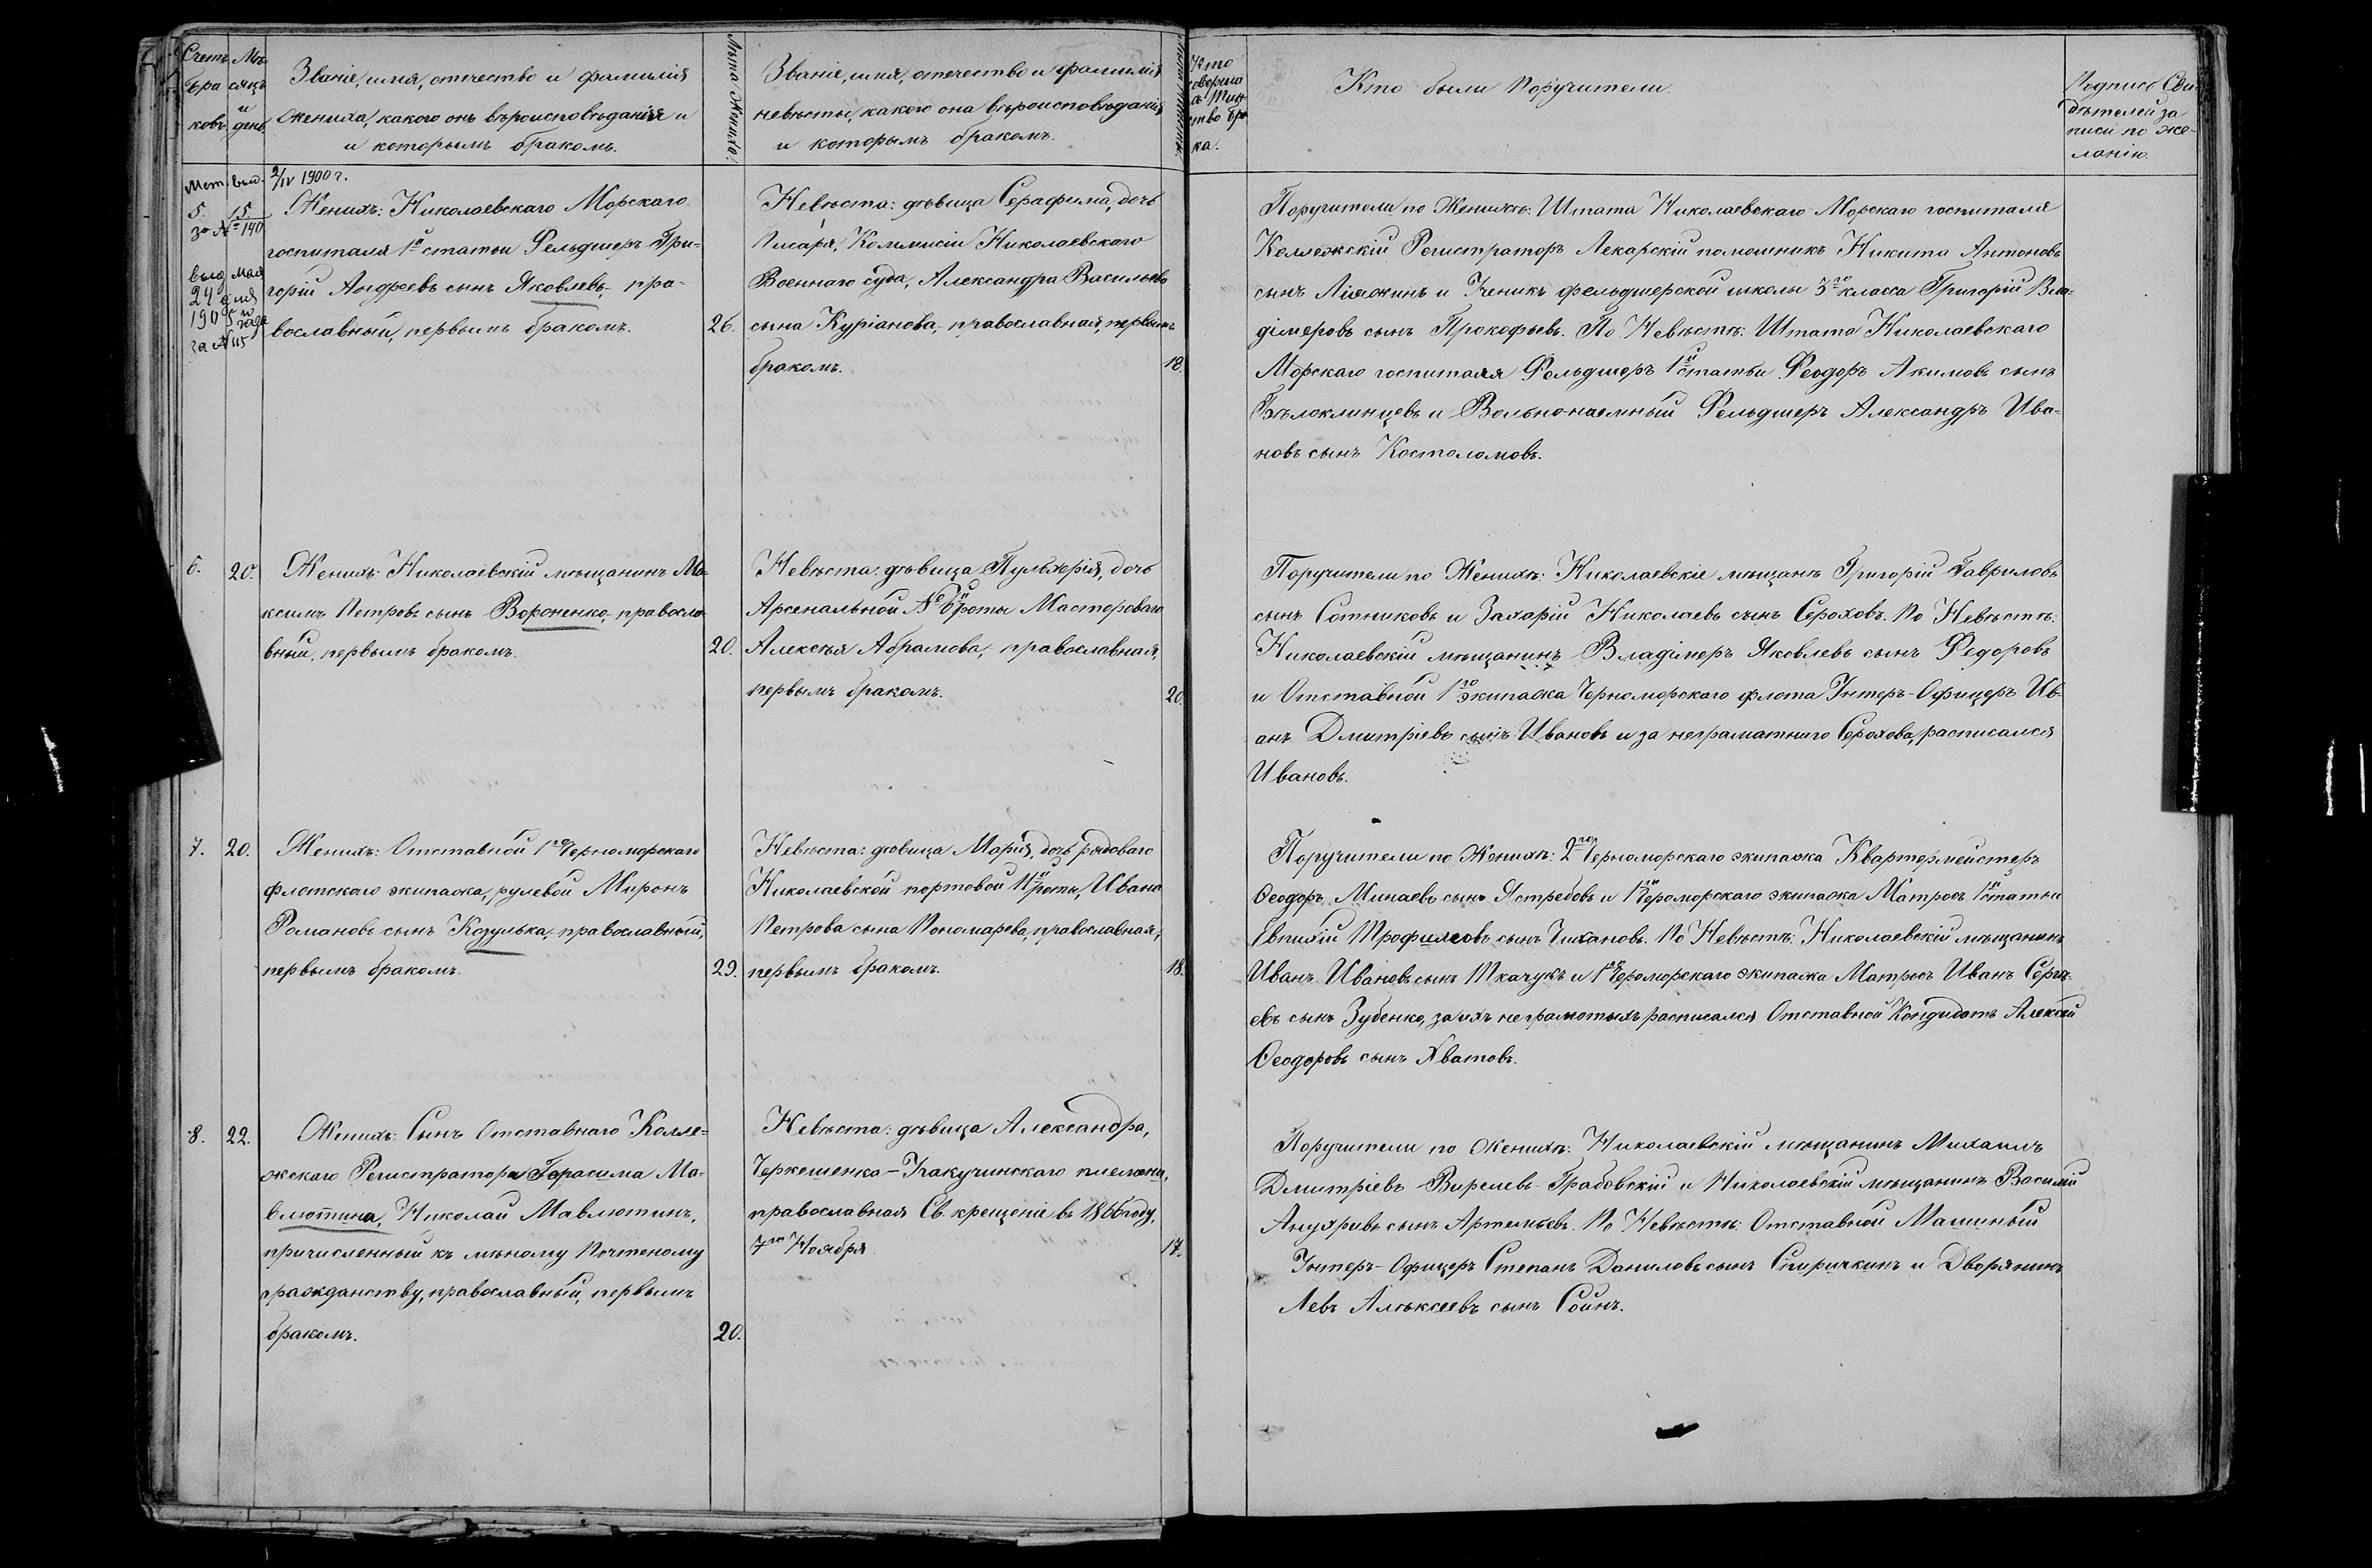 Счетъ
бра
ковъ.
Мѣ
сяцъ
и
день
Званіе, имя, отечество и фамилія
жениха, какого онъ вѣроисповѣданія и
и которымъ бракомъ.
Лѣта Жениха.
Званіе, имя, отечество и фамилія
невѣсты, какого она вѣроисповѣданія
и которымъ бракомъ.
Кто
соверша
а Таин
ство бра
ка.
Кто были Поручители.
Подписъ Сви
дѣтелей за
писи по же-
ланію.
Мет. выд. 2/IV 1900 г.
5. 15.
за № 140
выд мая
24 дня
1905 года
за № 115
Женихъ: Николаевскаго Морскаго
госпиталя 1й статьи Фельдшеръ Гри-
горій Андреевъ сынъ Яковлевъ, пра-
вославный, первымъ бракомъ.
26.
Невѣста: дѣвица Серафима, дочь
Писаря, Коммисіи Николаевскаго
Военнаго суда, Александра Васильева
сына Куріанова, православная, первымъ
бракомъ.
18.
Поручители по Женихѣ: Штата Николаевскаго Морскаго госпиталя
Коллежскій Регистраторъ Лекарскій помошникъ Никита Антоновъ
сынъ Ляжинъ и Ученикъ фельдшерской школы 3го класса Григорій Вла-
діміровъ сынъ Прокофьевъ. По Невѣстѣ: Штата Николаевскаго
Морскаго госпиталя Фельдшеръ 1й статьи Феодоръ Акимовъ сынъ
Бѣлоклинцевъ и Вольнонаемный Фельдшеръ Александръ Ива-
новъ сынъ Костоломовъ.
6. 20.
Женихъ: Николаевскій мѣщанинъ Ма-
ксимъ Петровъ сынъ Вороненко, правосла
вный, первымъ бракомъ.
20.
Невѣста: дѣвица Пульхерія, дочь
Арсенальной № 6й роты Мастероваго
Алексѣя Абрамова, православная,
первымъ бракомъ.
20.
Поручители по Женихѣ: Николаевскіе мѣщанъ Григорій Гавриловъ
сынъ Сотниковъ и Захарій Николаевъ сынъ Сероховъ. По Невѣстѣ:
Николаевскій мѣщанинъ Владіміръ Яковлевъ сынъ Федоровъ
и Отставной 1го экипажа Черноморскаго флота Унтеръ-Офицеръ Ив-
анъ Дмитріевъ сынъ Ивановъ и за неграматнаго Серохова, расписался
Ивановъ.
7. 20.
Женихъ: Отставной 1го Черноморскаго
флотскаго экипажа, рулевой Миронъ
Романовъ сынъ Козулька, православный,
первымъ бракомъ.
29.
Невѣста: дѣвица Марія, дочь рядоваго
Николаевской портовой 11й роты, Ивана
Петрова сына Пономарева, православная,
первымъ бракомъ.
18.
Поручители по Женихѣ: 2го Черноморскаго экипажа Квартермейстеръ
Феодоръ Минаевъ сынъ Ястребовъ и 1го Черноморскаго экипажа Матросъ 1й статьи
Евпихій Трофимовъ сынъ Чихановъ. По Невѣстѣ: Николаевскій мѣщанинъ
Иванъ Ивановъ сынъ Ткачукъ и 1го Черноморскаго экипажа Матросъ Иванъ Сергѣ-
евъ сынъ Зубенко, за ихъ неграмотыхъ расписался Отставной Кондидатъ Алексѣй
Феодоровъ сынъ Хватовъ.
8. 22.
Женихъ: Сынъ Отставнаго Колле-
жскаго Регистратора Герасима Ма-
влютина, Николай Мавлютинъ,
причисленный къ личному Почтеному
гражданству, православный, первымъ
бракомъ.
20.
Невѣста: дѣвица Александра,
Черкешенка-Хакучинскаго племени,
православная Св. крещеніе въ 1866 году,
7го Ноября
17.
Поручители по Женихѣ: Николаевскій мѣщанинъ Михаилъ
Дмитріевъ Вирелевъ-Грабовскій и Николаевскій мѣщанинъ Василій
Андреевъ сынъ Артемьевъ. По Невѣстѣ: Отставной Машиный
Унтеръ-Офицеръ Степанъ Даниловъ сынъ Спиричкинъ и Дворянинъ
Левъ Алексѣевъ сынъ Соинъ.